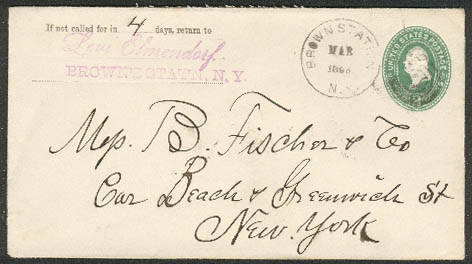 If not called for in 4 days, return to
Levi Elmendorf
BROWN'S STAT'N, N. Y.
BROWN STATION
MAR
N.Y.
UNITED STATES POSTAGE
Mess B. Fischer & Co
Cor Beach & Greenwich St
New York